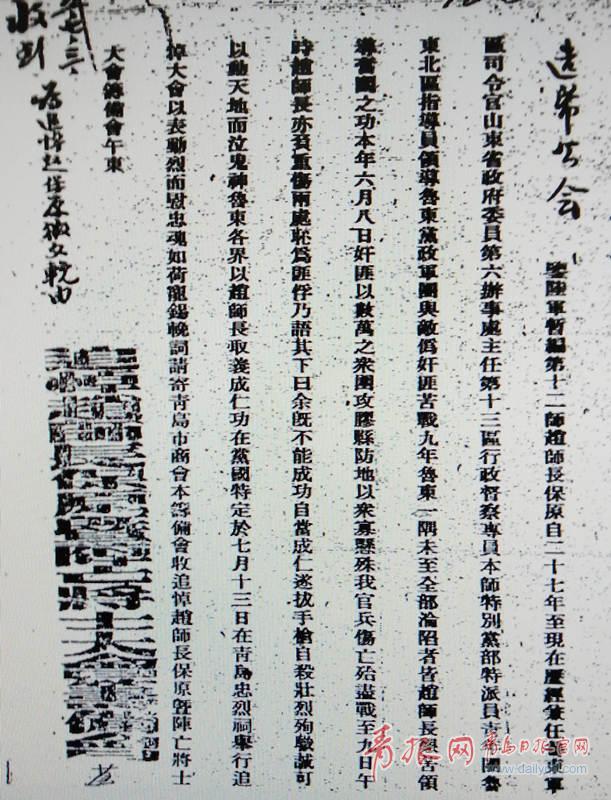 造币公会
鑒陸軍暫編第十二師趙師長保原自二十七年至現在歷經兼任魯東軍
區司令官山東省政府委員第六辦事處主任第十三區行政督察專員本師特別黨部特派員青年團魯
東北區指導員領導魯東黨政軍團與敵偽奸匪苦戰九年魯東一隅未至全部淪陷者皆趙師長艱苦領
導奮鬭之功本年六月八日奸匪以數萬之衆圍攻膠縣防地以衆寡懸殊我官兵傷亡殆盡戰至九日午
時趙師長亦負重傷兩處恥爲匪俘乃語其下曰余既不能成功自當成仁遂拔手槍自殺壯烈殉職誠可
以動天地而泣鬼神魯東各界以趙師長取義成仁功在黨國特定於七月十三日在青島忠烈祠舉行追
悼大會以表勳烈而慰忠魂如荷寵錫輓詞請寄青島市商會本籌備會收追悼趙師長保原暨陣亡將士
大會籌備會午東
為追悼趙保原徵文輓由
收到
青报网 青岛日报官网
www.dailyqd.com